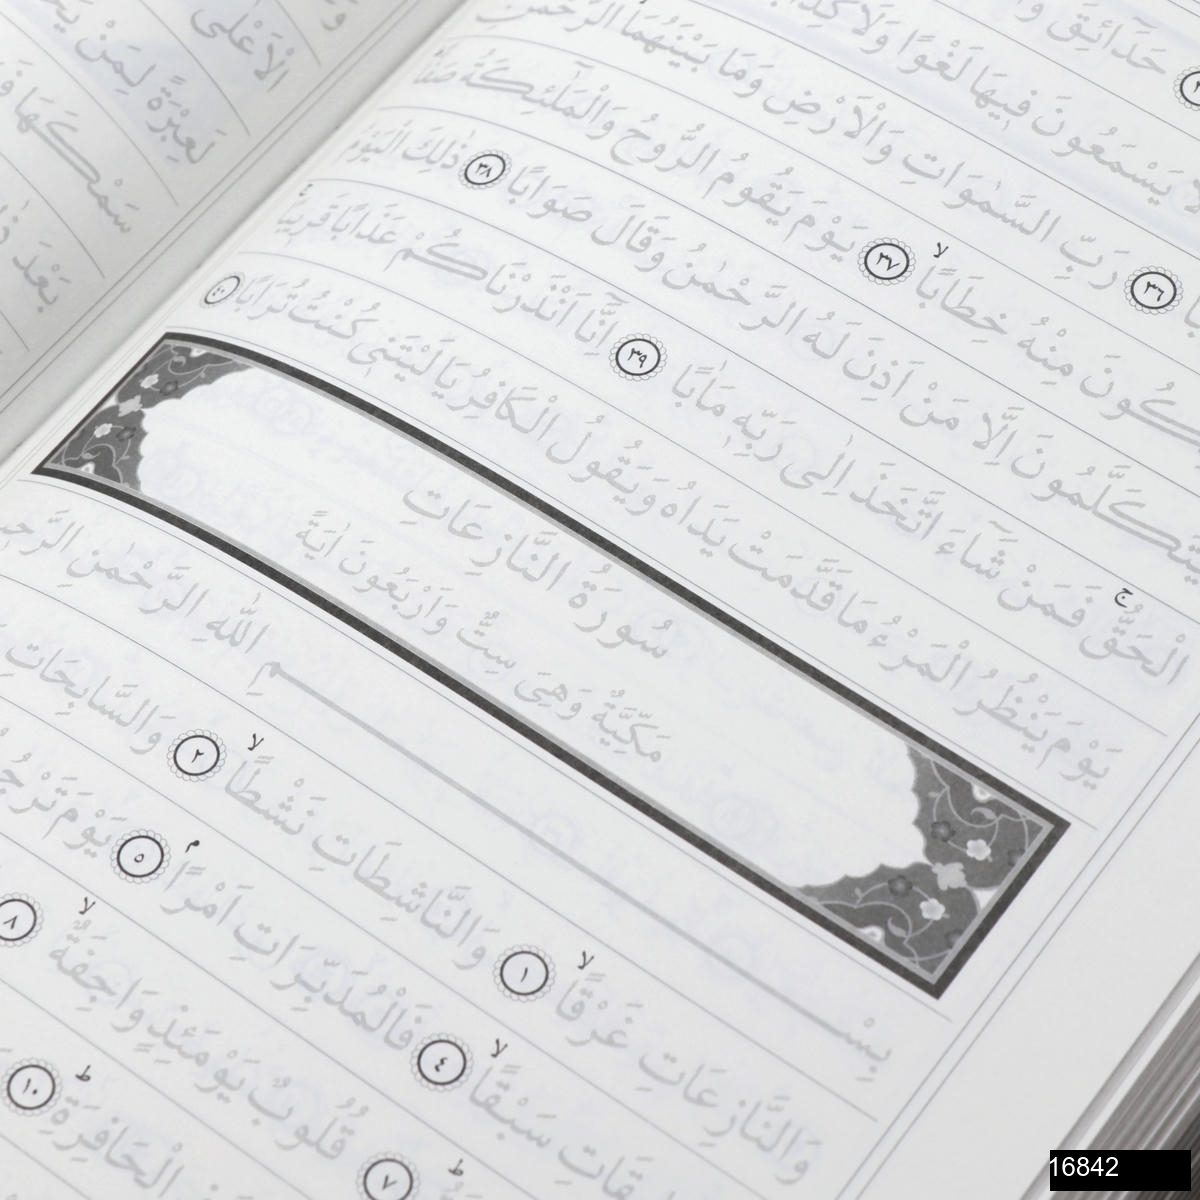 حَدَٓائِقَ
يَسْمَعُونَ فٖيهَا لَغْوًا وَلَا كِذَّابًا
٣٦ رَبِّ السَّمٰوَاتِ وَالْاَرْضِ وَمَا بَيْنَهُمَا الرَّحْمٰنِ
خِطَابًاۙ ٣٧ يَوْمَ يَقُومُ الرُّوحُ وَالْمَلٰٓئِكَةُ صَفًّا
يَتَكَلَّمُونَ اِلَّا مَنْ اَذِنَ لَهُ الرَّحْمٰنُ وَقَالَ صَوَابًا ٣٨ ذٰلِكَ الْيَوْمُ
الْحَقُّۚ فَمَنْ شَٓاءَ اتَّخَذَ اِلٰى رَبِّهٖ مَاٰبًا ٣٩ اِنَّٓا اَنْذَرْنَاكُمْ عَذَابًا قَرٖيبًاۚ
يَوْمَ يَنْظُرُ الْمَرْءُ مَا قَدَّمَتْ يَدَاهُ وَيَقُولُ الْكَافِرُ يَا لَيْتَنٖى كُنْتُ تُرَابًا ٤٠
سُورَةُ النَّازِعَاتِ
مَكِّيَّةٌ وَهِىَ سِتٌّ وَاَرْبَعُونَ اٰيَةً
بِسْمِ اللّٰهِ الرَّحْمٰنِ الرَّحٖيمِ
وَالنَّازِعَاتِ غَرْقًاۙ ١ وَالنَّاشِطَاتِ نَشْطًاۙ ٢ وَالسَّابِحَاتِ
سَبْقًاۙ ٤ فَالْمُدَبِّرَاتِ اَمْرًاۢ ٥ يَوْمَ تَرْجُفُ
٧ قُلُوبٌ يَوْمَئِذٍ وَاجِفَةٌۙ ٨
الْحَافِرَةِۜ ١٠
الْاَعْلٰى
لَعِبْرَةً لِمَنْ
سَمْكَهَا
بَعْدَ
16842